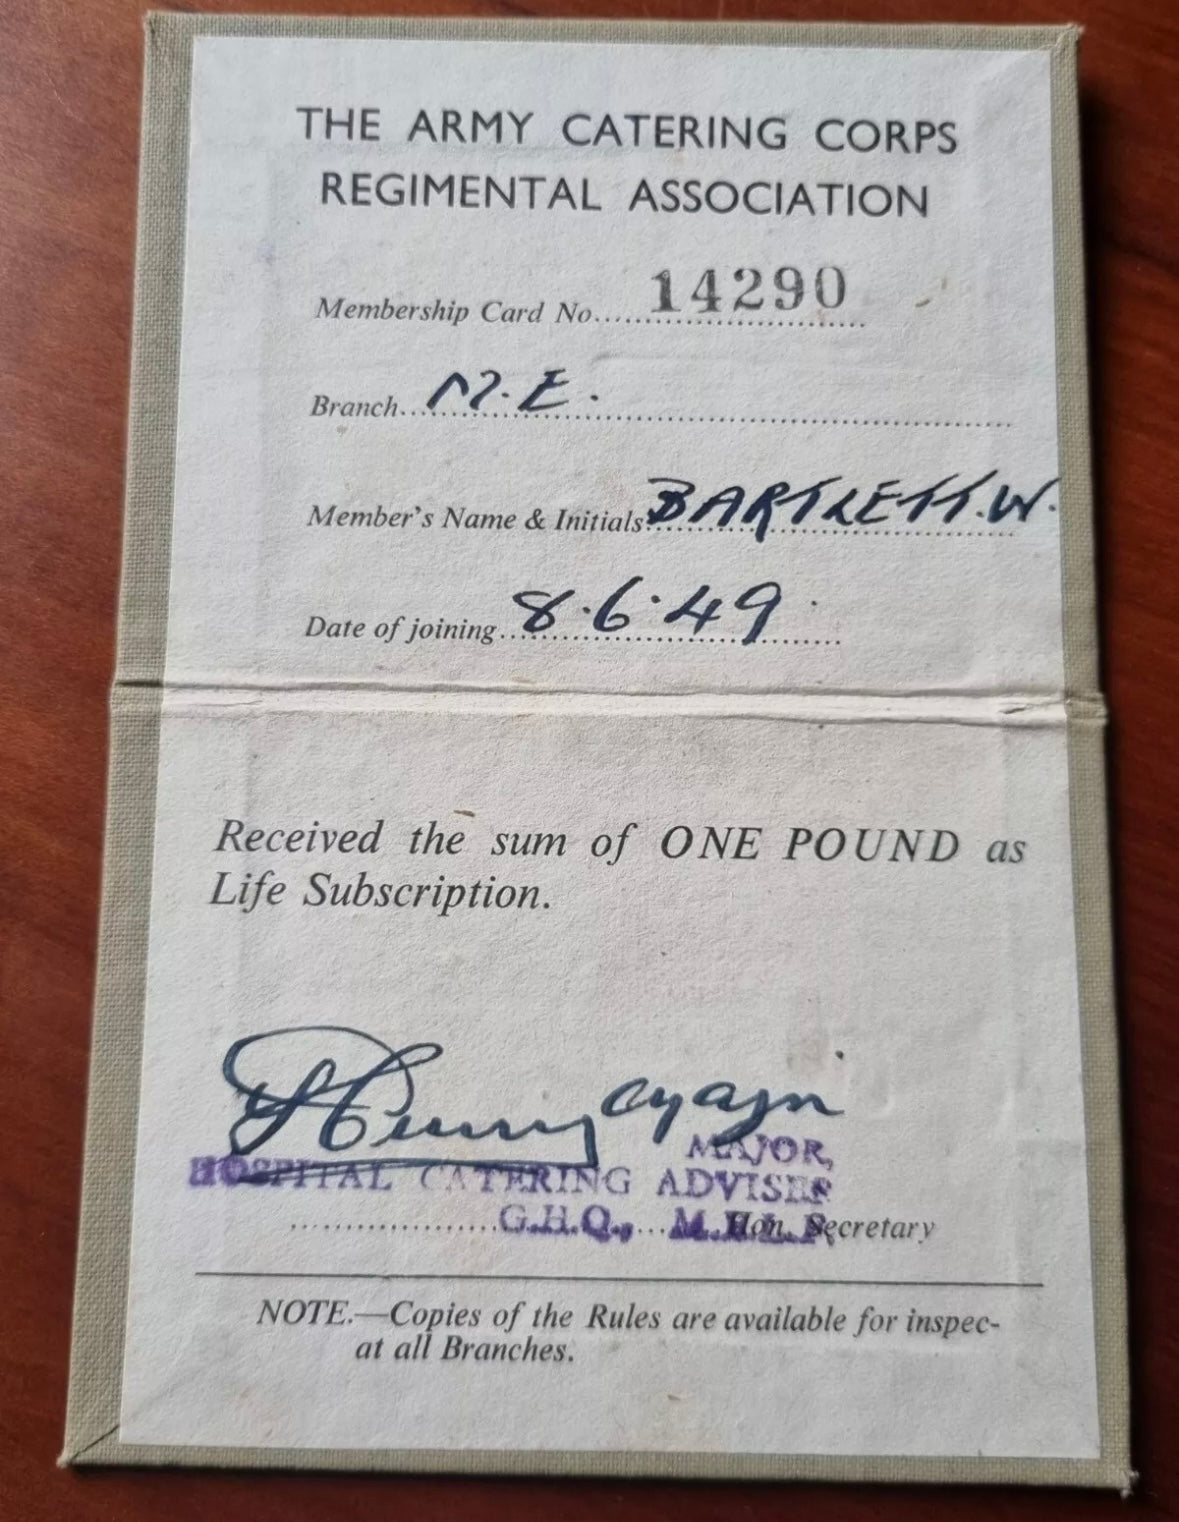 THE ARMY CATERING CORPS
REGIMENTAL ASSOCIATION
Membership Card No...... 14290
Branch... M.E.
Member's Name & Initials BARTLETT.W.
Date of joining... 8.6.49
Received the sum of ONE POUND as
Life Subscription.
MAJOR,
HOSPITAL CATERING ADVISER
G.H.Q., M.E.L.F. Hon. Secretary
NOTE.—Copies of the Rules are available for inspec-
at all Branches.